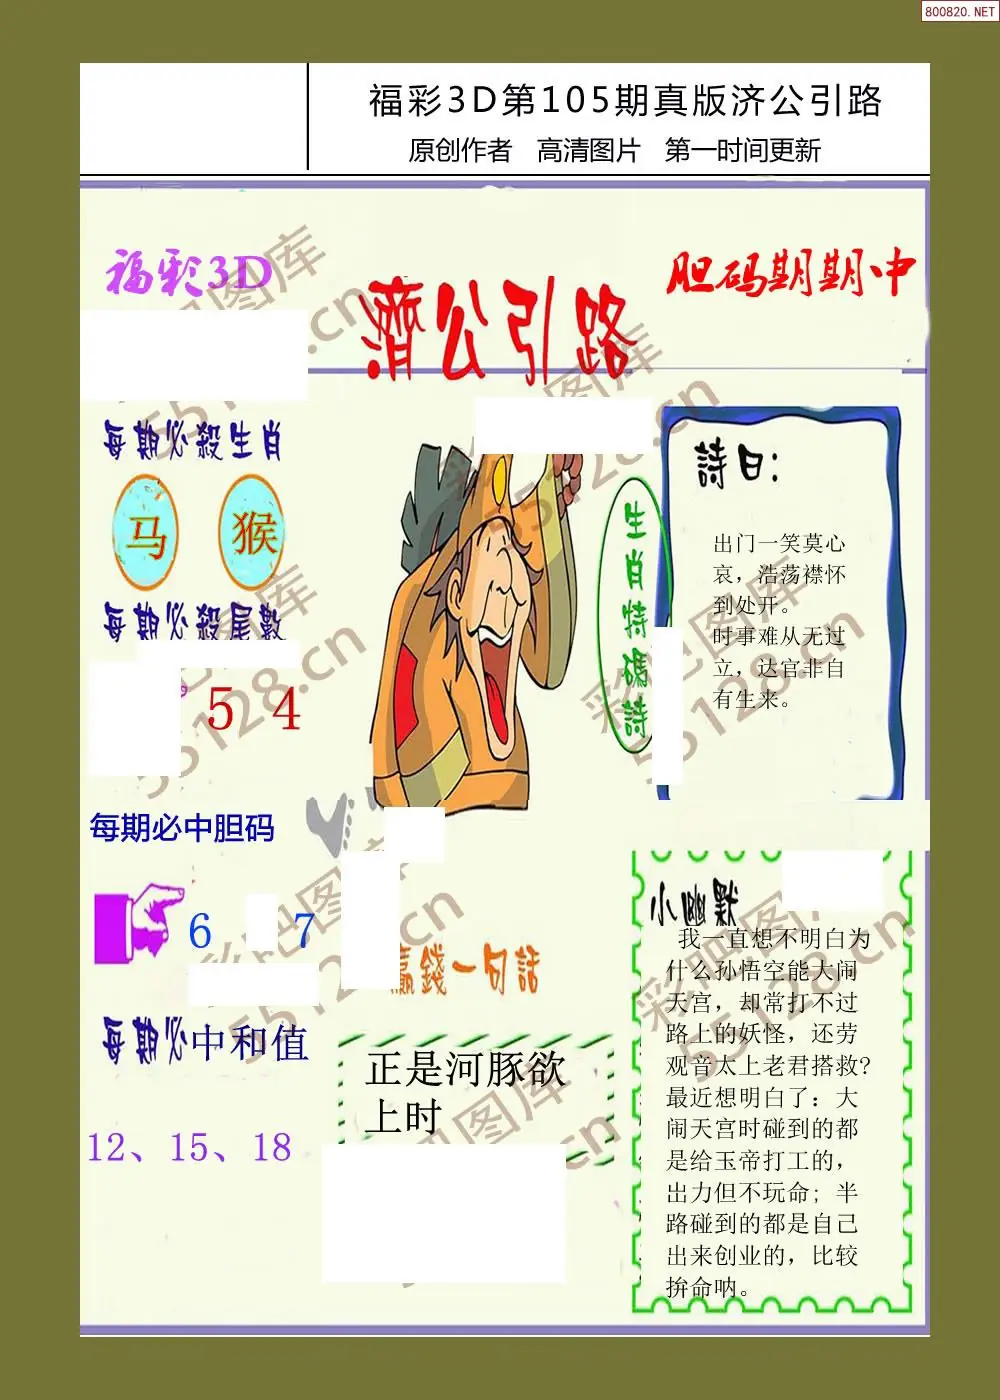 800820.NET
福彩3D第105期真版济公引路
原创作者 高清图片 第一时间更新
福彩3D
濟公引路
胆码期期中
每期必殺生肖
马 猴
每期必殺尾數
5 4
每期必中胆码
6 7
每期必中和值
12、15、18
生肖特碼詩
詩曰:
出门一笑莫心
哀，浩荡襟怀
到处开。
时事难从无过
立，达官非自
有生来。
赢錢一句話
正是河豚欲
上时
小幽默
我一直想不明白为
什么孙悟空能大闹
天宫，却常打不过
路上的妖怪，还劳
观音太上老君搭救?
最近想明白了：大
闹天宫时碰到的都
是给玉帝打工的，
出力但不玩命；半
路碰到的都是自己
出来创业的，比较
拚命呐。
彩吧图库
55128.cn
彩吧图库
55128.cn
彩吧图库
55128.cn
彩吧图库
55128.cn
彩吧图库
55128.cn
彩吧图库
55128.cn